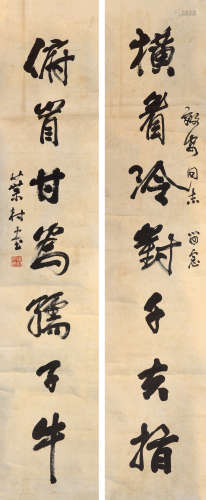 橫眉冷對千夫指
同志 留念
俯首甘為孺子牛
村